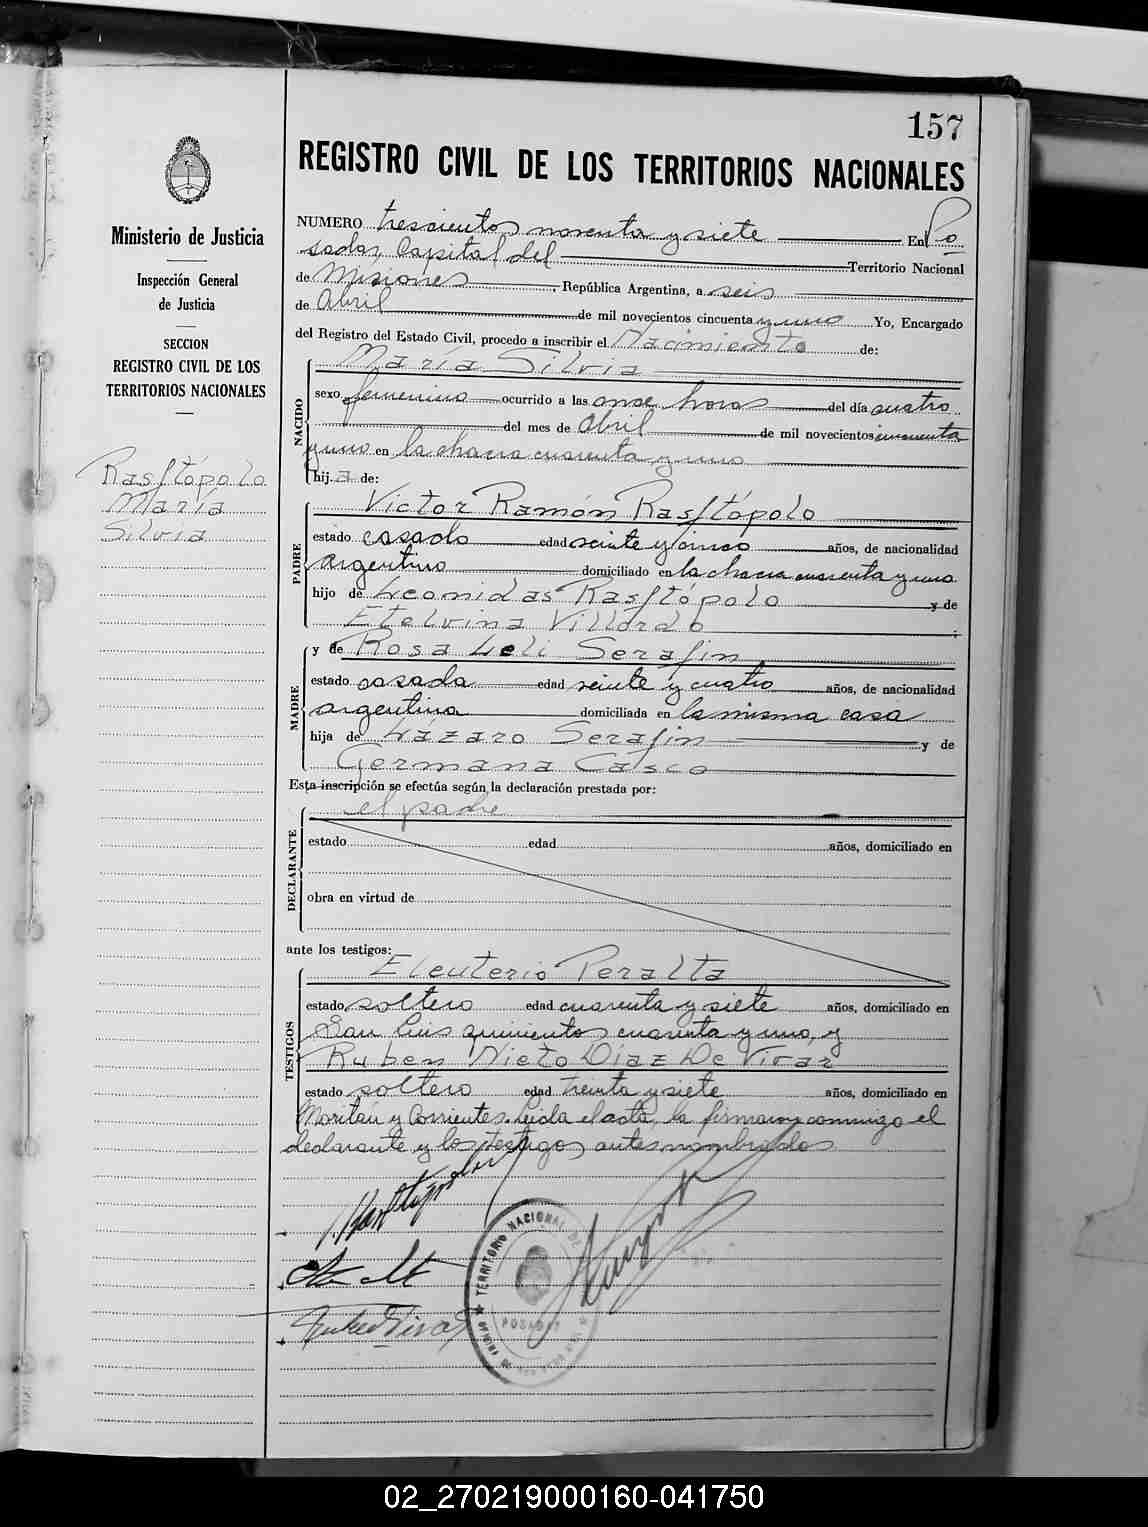 157
REGISTRO CIVIL DE LOS TERRITORIOS NACIONALES
Ministerio de Justicia
Inspección General
de Justicia
SECCION
REGISTRO CIVIL DE LOS
TERRITORIOS NACIONALES
Rasftópolo
María
Silvia
NUMERO trescientos noventa y siete En Po
sadas, Capital del Territorio Nacional
de Misiones, República Argentina, a seis
de Abril de mil novecientos cincuenta y uno Yo, Encargado
del Registro del Estado Civil, procedo a inscribir el Nacimiento de:
María Silvia
NACIDO
sexo femenino ocurrido a las once horas del día cuatro
del mes de Abril de mil novecientos cincuenta
y uno en la chacra cuarenta y uno
hij.a de:
Victor Ramón Rasftópolo
PADRE
estado casado edad veinte y cinco años, de nacionalidad
argentino domiciliado en la chacra cuarenta y uno
hijo de Leonidas Rasftópolo y de
Etelvina Villordo
y de Rosa Leli Serafin
MADRE
estado casada edad veinte y cuatro años, de nacionalidad
argentina domiciliada en la misma casa
hija de Lazaro Serafin y de
Germana Casco
Esta inscripción se efectúa según la declaración prestada por:
el padre
DECLARANTE
estado edad años, domiciliado en
obra en virtud de
ante los testigos:
Eleuterio Peralta
TESTIGOS
estado soltero edad cuarenta y siete años, domiciliado en
San Luis quinientos cuarenta y uno, y
Ruben Nieto Díaz De Vivar
estado soltero edad treinta y siete años, domiciliado en
y Corrientes. Leida el acta, la firmaron conmigo el
declarante y los testigos antes nombrados
TERRITORIO NACIONAL DE
POSADAS
02_270219000160-041750